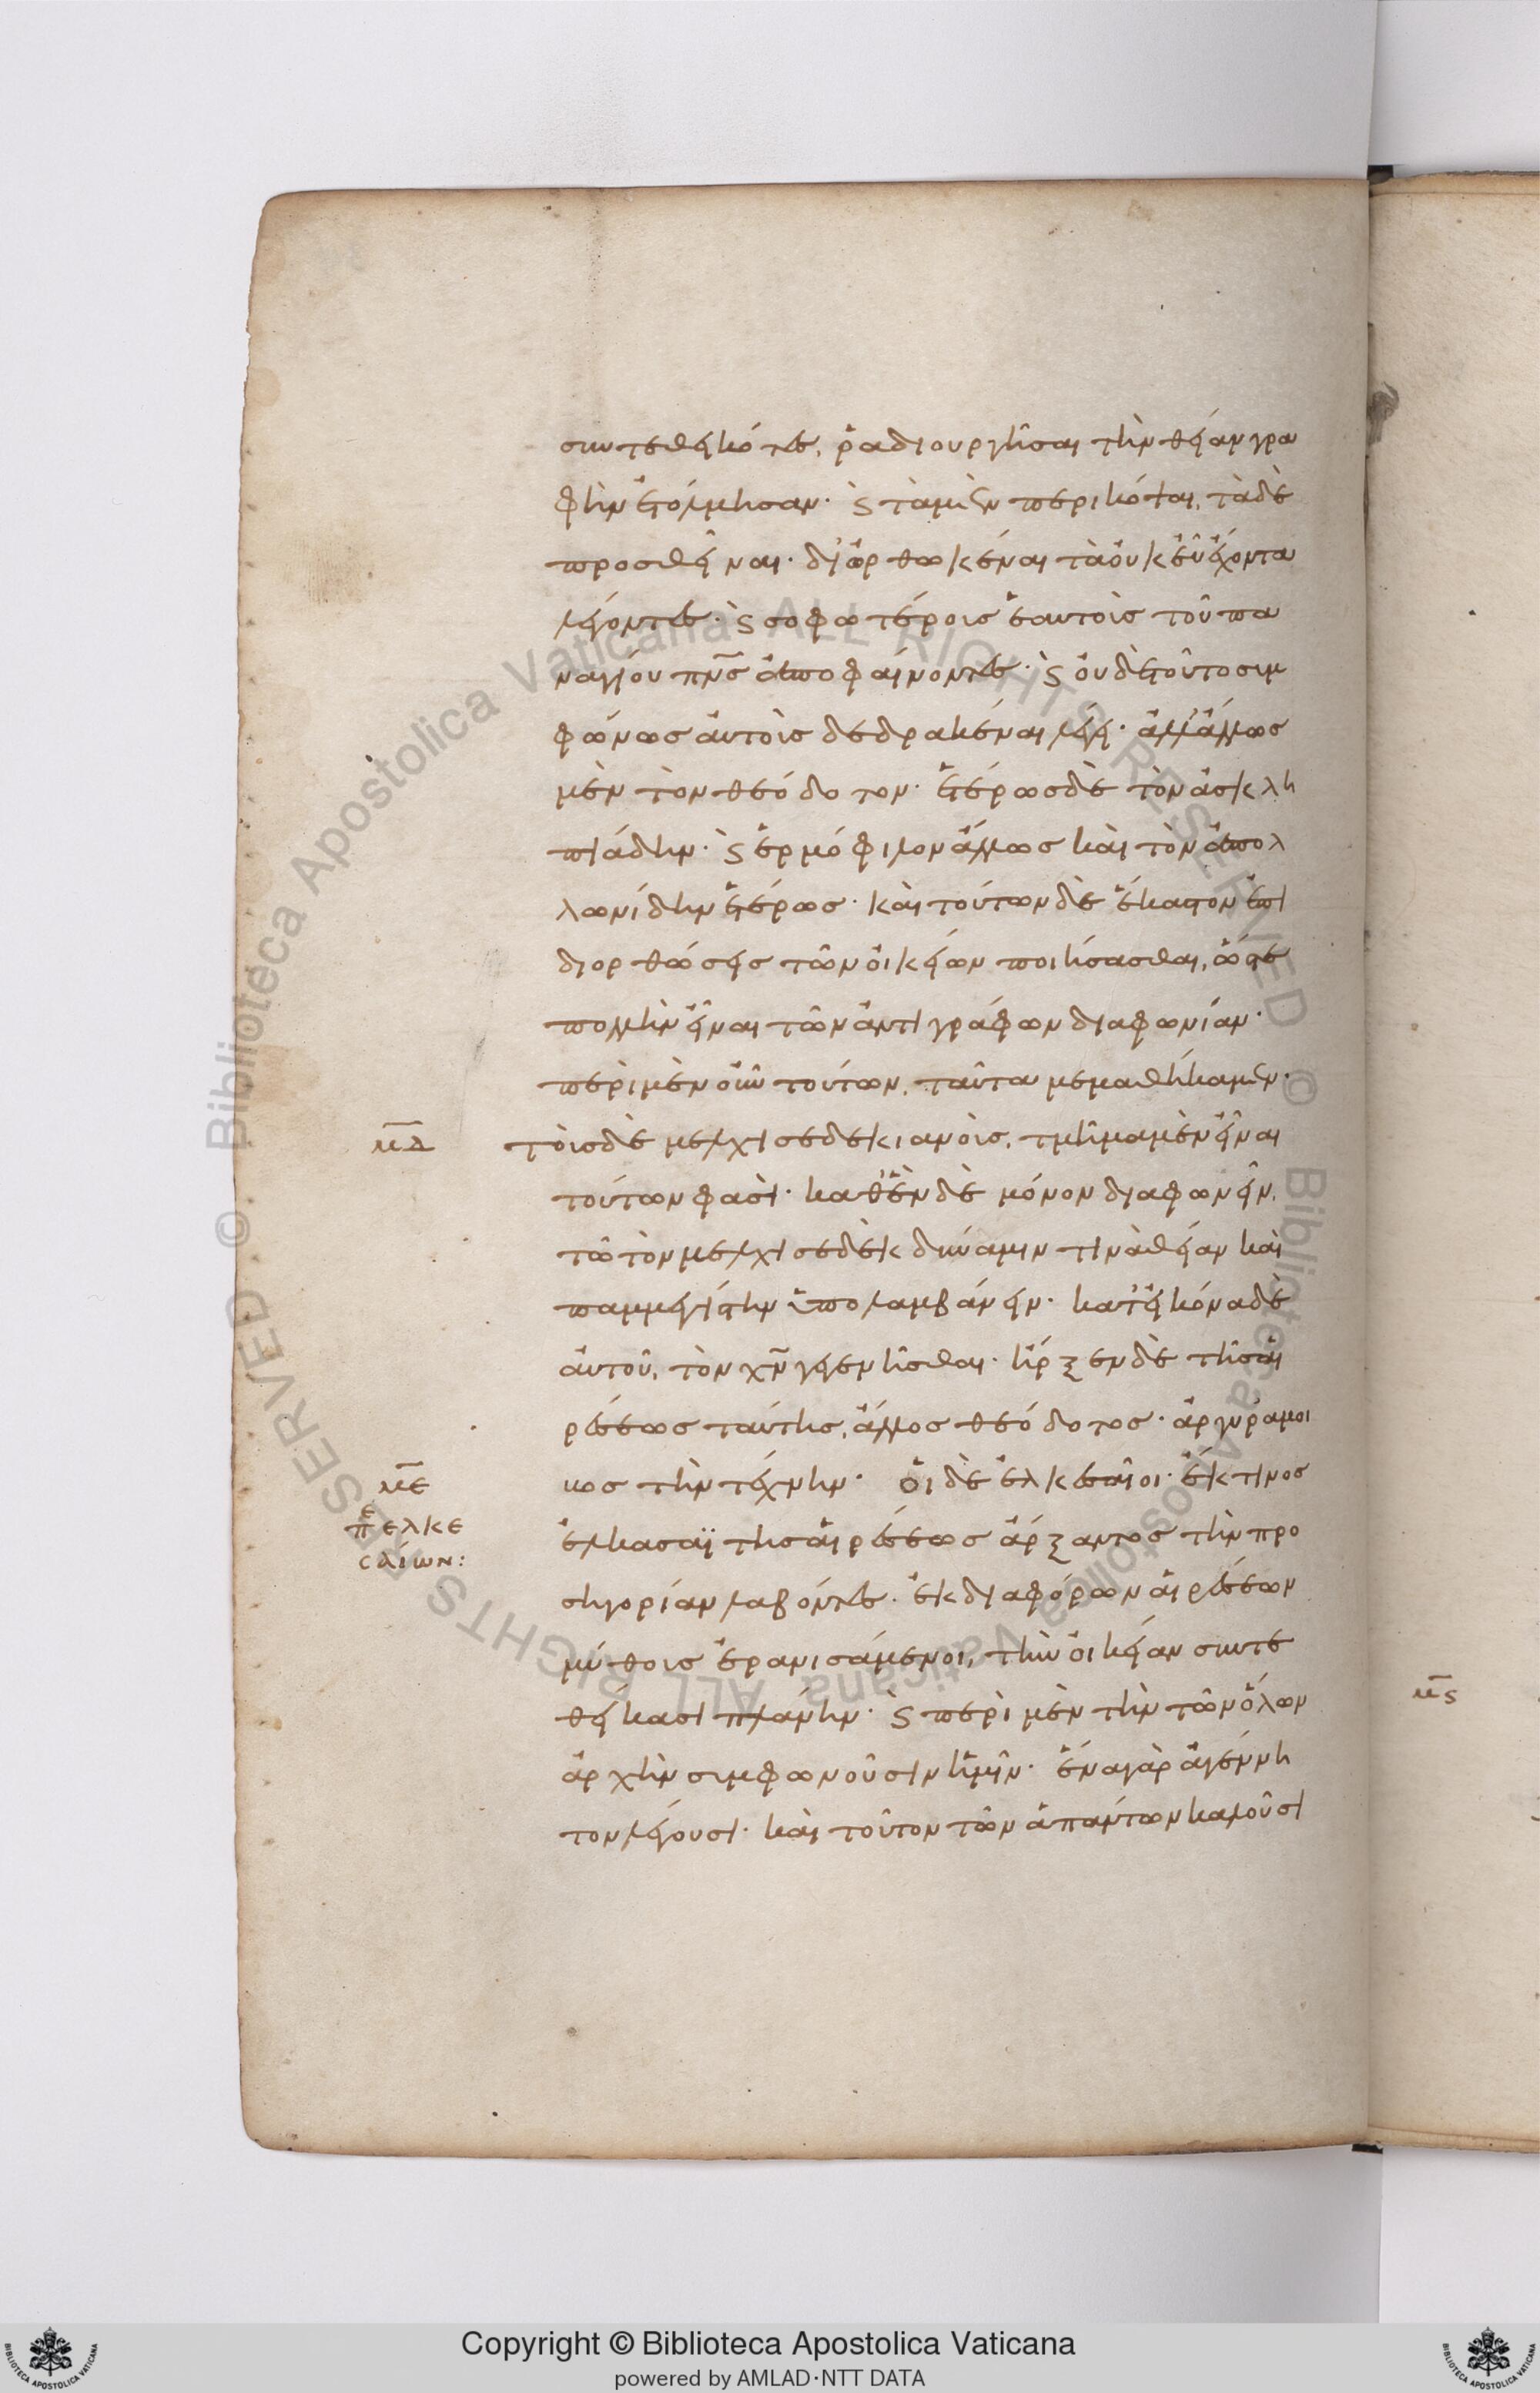 συντεθεικότες, ῥαδιουργῆσαι τὴν θείαν γρα
φὴν ἐτόλμησαν· καὶ τὰ μὲν περικόψαι, τὰ δὲ
προσθεῖναι· διωρθωκέναι τὰ οὐκ εὖ ἔχοντα
λέγοντες· καὶ σοφωτέροις ἑαυτοὺς τοῦ πα
ναγίου πν̅σ ἀποφαίνοντες· καὶ οὐδὲ τοῦτο συμ
φώνως αὐτοὺς δεδρακέναι λέγει· ἀλλ' ἄλλως
μὲν τὸν θεόδοτον· ἑτέρως δὲ τὸν ἀσκλη
πιάδην· καὶ ἑρμόφιλον ἄλλως καὶ τὸν ἀπολ
λωνίδην ἑτέρως· καὶ τούτων δὲ ἕκαστον ἐπι
διορθώσεις τῶν οἰκείων ποιήσασθαι, ὥστε
πολλὴν εἶναι τῶν ἀντιγράφων διαφωνίαν·
περὶ μὲν οὖν τούτων, ταῦτα μεμαθήκαμεν·
μ̅δ̅ τοὺς δὲ μελχισεδεκιανοὺς, τμῆμα μὲν εἶναι
τούτων φασὶ· καθ' ἓν δὲ μόνον διαφωνεῖν,
τῶ τὸν μελχισεδὲκ δύναμιν τινὰ θείαν καὶ
παμμεγίστην ὑπολαμβάνειν· κατ' εἰκόνα δὲ
αὐτοῦ, τὸν χν̅ γεγενῆσθαι· ἦρξεν δὲ τῆς αἱ
ρέσεως ταύτης, ἄλλος θεόδοτος· ἀργυραμοι
μ̅ε̅ βος τὴν τέχνην· οἱ δὲ ἐλκεσαῖοι· ἔκ τινος
π̅ε ελκε
σαίων:
ἐλκασαὶ τῆς αἱρέσεως ἄρξαντος τὴν προ
σηγορίαν λαβόντες· ἐκ διαφόρων αἱρέσεων
μύθους ἐρανισάμενοι, τὴν οἰκείαν συντε
θείκασι πλάνην· καὶ περὶ μὲν τὴν τῶν ὅλων
ἀρχὴν συμφωνοῦσιν ἡμῖν· ἕνα γὰρ ἀγέννη
τον λέγουσι· καὶ τοῦτον τῶν ἁπάντων καλοῦσι
μ̅ς
Copyright © Biblioteca Apostolica Vaticana
powered by AMLAD·NTT DATA